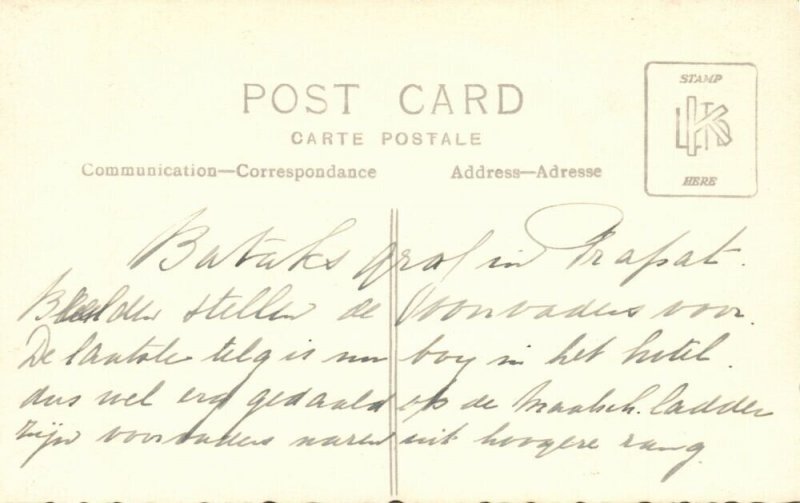 POST CARD
CARTE POSTALE
Communication—Correspondance
Address—Adresse
STAMP
HERE
Bataks graf in Prapat.
Beelden stellen de voorvaders voor.
De laatste telg is nu boy in het hotel.
dus wel erg gedaald op de maatsch. ladder
zijn voorvaders waren uit hoogere rang